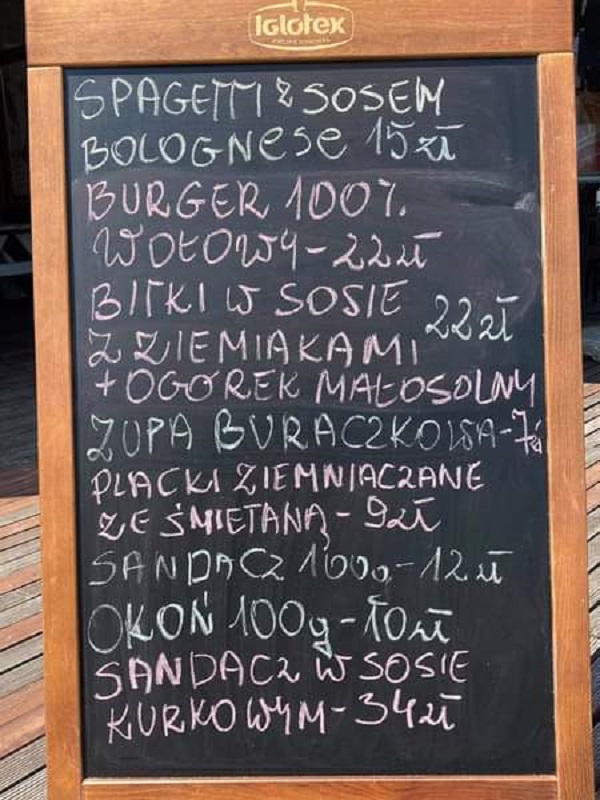 Iglotex
SPAGETTI Z SOSEM
BOLOGNESE 15zł
BURGER 100%
WOŁOWY-22zł
BITKI W SOSIE
22zł
Z ZIEMIAKAMI
+OGÓREK MAŁOSOLNY
ZUPA BURACZKOWA-7zł
PLACKI ZIEMNIACZANE
ZE ŚMIETANĄ-9zł
SANDACZ 100g-12zł
OKOŃ 100g-10zł
SANDACZ W SOSIE
KURKOWYM-34zł